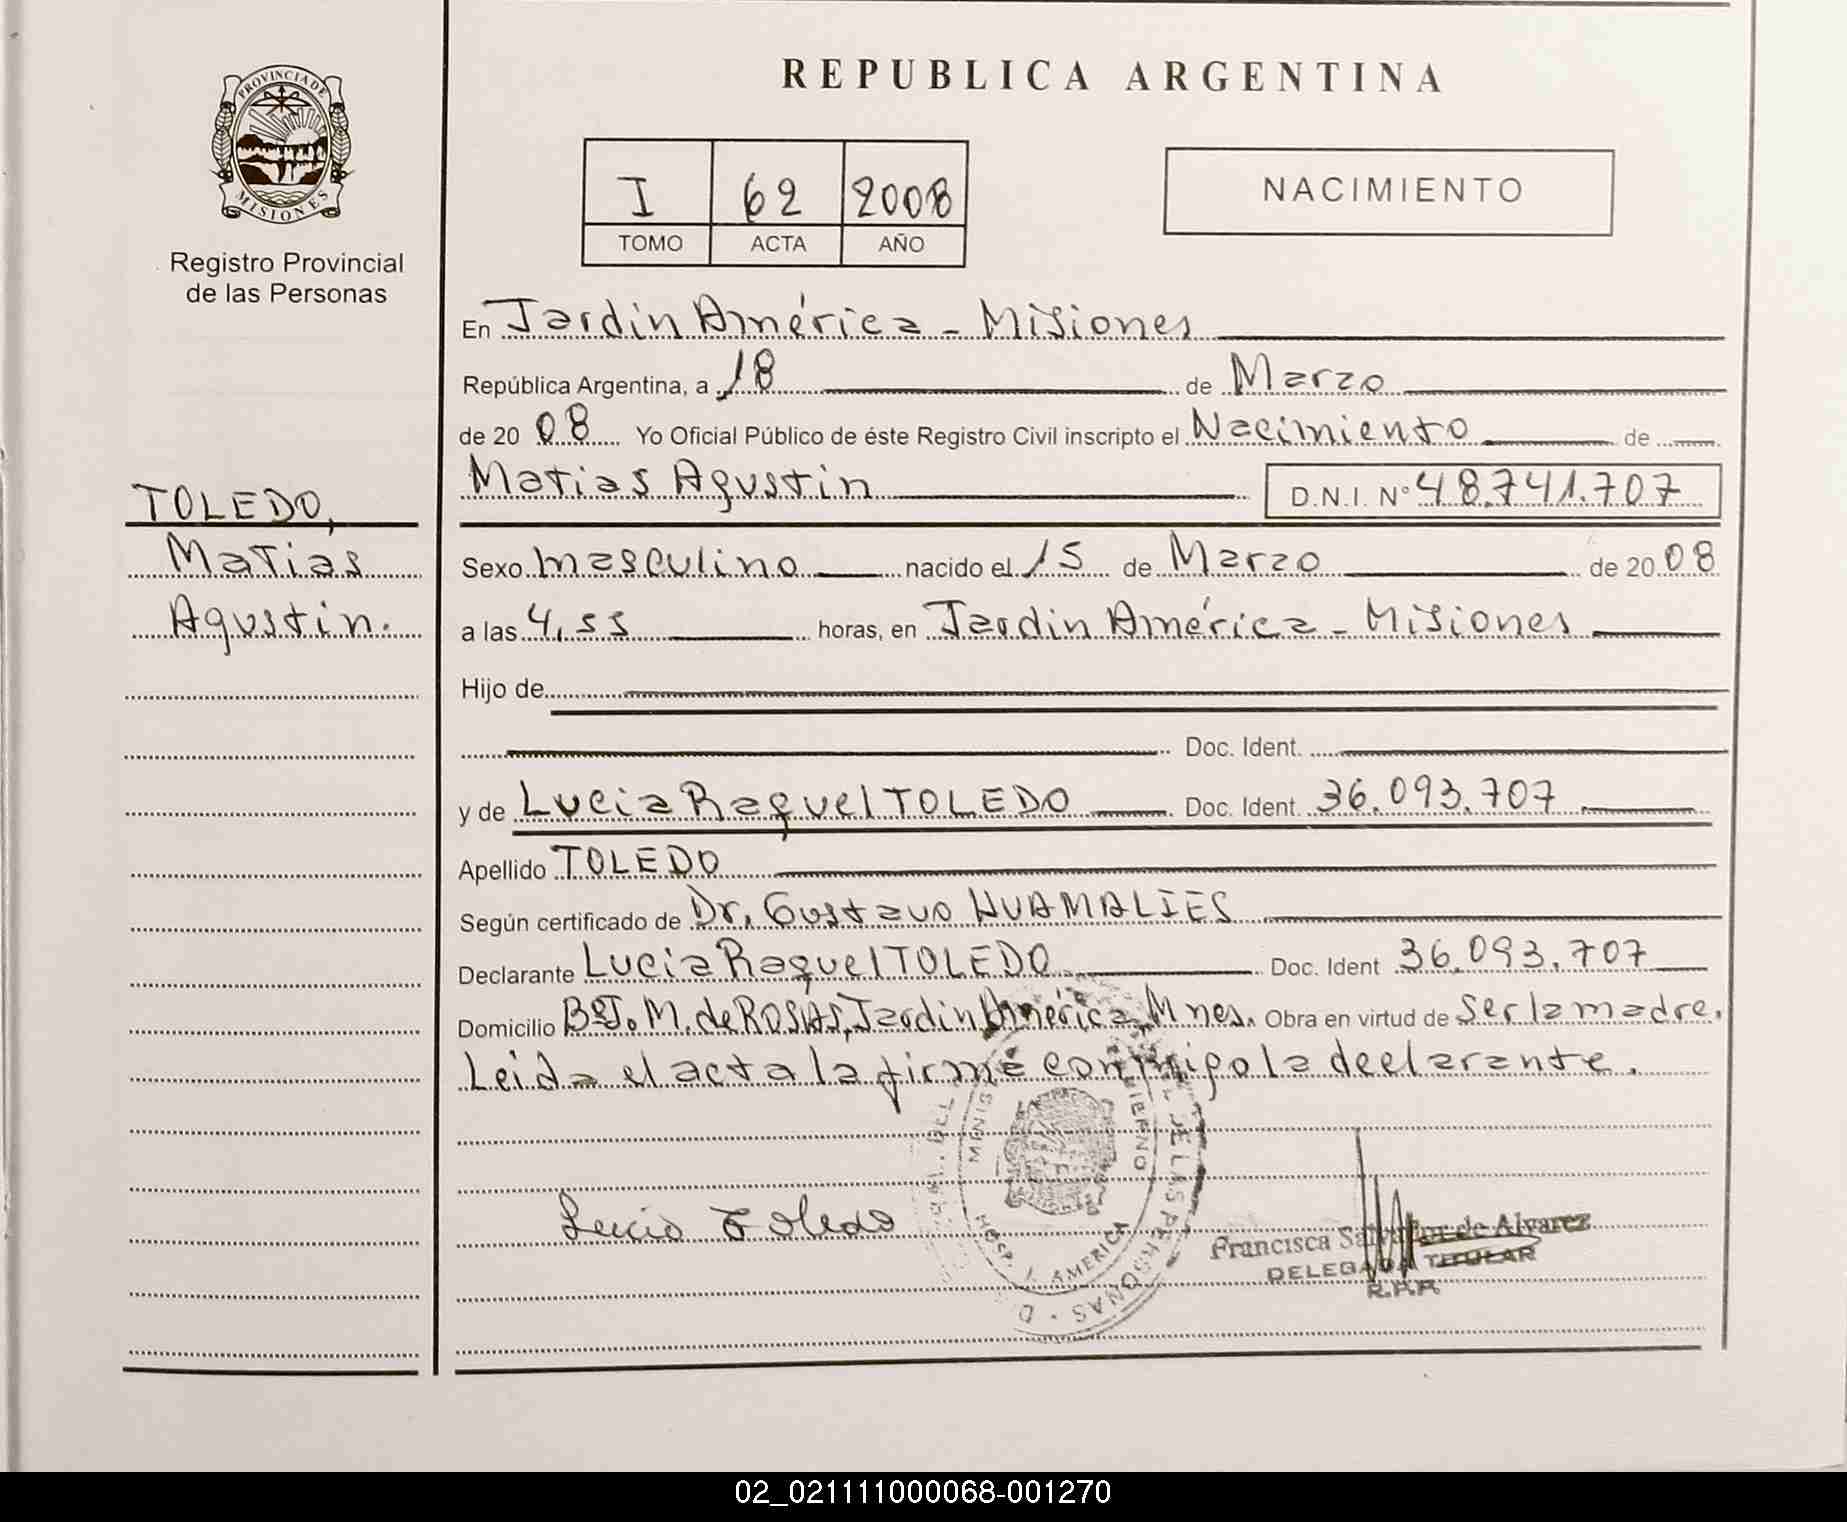 PROVINCIA DE
MISIONES
Registro Provincial
de las Personas
TOLEDO,
Matias
Agustin.
REPUBLICA ARGENTINA
I 62 2008
TOMO ACTA AÑO
NACIMIENTO
En Jardin América - Misiones
República Argentina, a 18 de Marzo
de 20 08 Yo Oficial Público de éste Registro Civil inscripto el Nacimiento de
Matias Agustin D.N.I. N° 48.741.707
Sexo masculino nacido el 15 de Marzo de 20 08
a las 4,55 horas, en Jardin América - Misiones
Hijo de
Doc. Ident.
y de Lucia Raquel TOLEDO Doc. Ident. 36.093.707
Apellido TOLEDO
Según certificado de Dr. Gustavo HUAMALIES
Declarante Lucia Raquel TOLEDO Doc. Ident 36.093.707
Domicilio B° J. M. de ROSAS, Jardin América, Mnes. Obra en virtud de ser la madre.
Leida el acta la firmé conmigo la declarante.
DE LAS PERSONAS
HOSP. J. AMERICA
Lucia Toledo
Francisca Salvador de Alvarez
DELEGADA TITULAR
R.P.P.
02_021111000068-001270